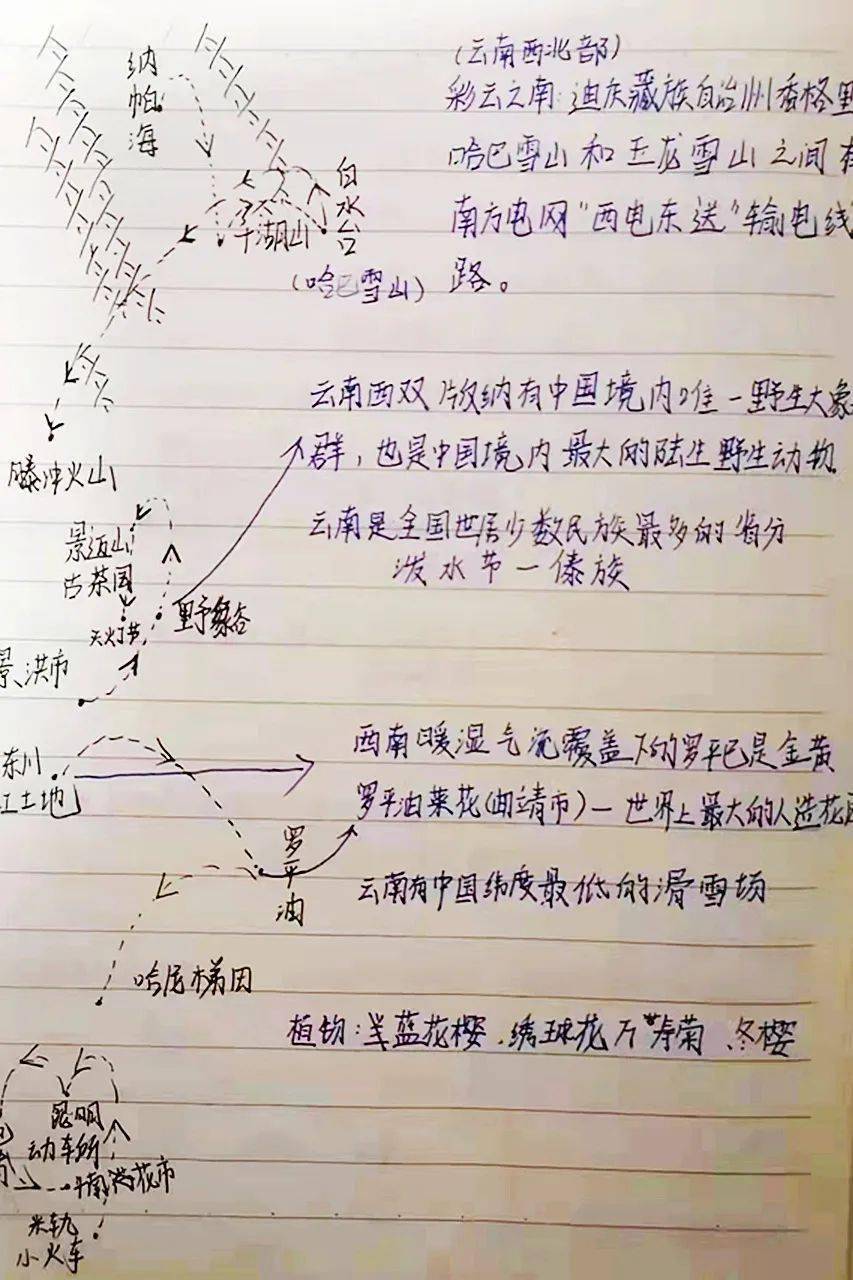 (云南西北部)
彩云之南:迪庆藏族自治州香格里
哈巴雪山和玉龙雪山之间有
南方电网“西电东送”输电线
路。
纳帕海
白水台
千湖山
(哈巴雪山)
腾冲火山
云南西双版纳有中国境内唯一野生大象
群,也是中国境内最大的陆生野生动物.
云南是全国世居少数民族最多的省分
泼水节一傣族
景迈山
古茶园
天灯节
野象谷
景洪市
东川
红土地
西南暖湿气流覆盖下的罗平已是金黄
罗平油菜花(曲靖市)一世界上最大的人造花园
罗平油
云南有中国纬度最低的滑雪场
哈尼梯田
植物:蓝花楹、绣球花 万寿菊、冬樱
昆明
动车所
斗南花市
米轨
小火车